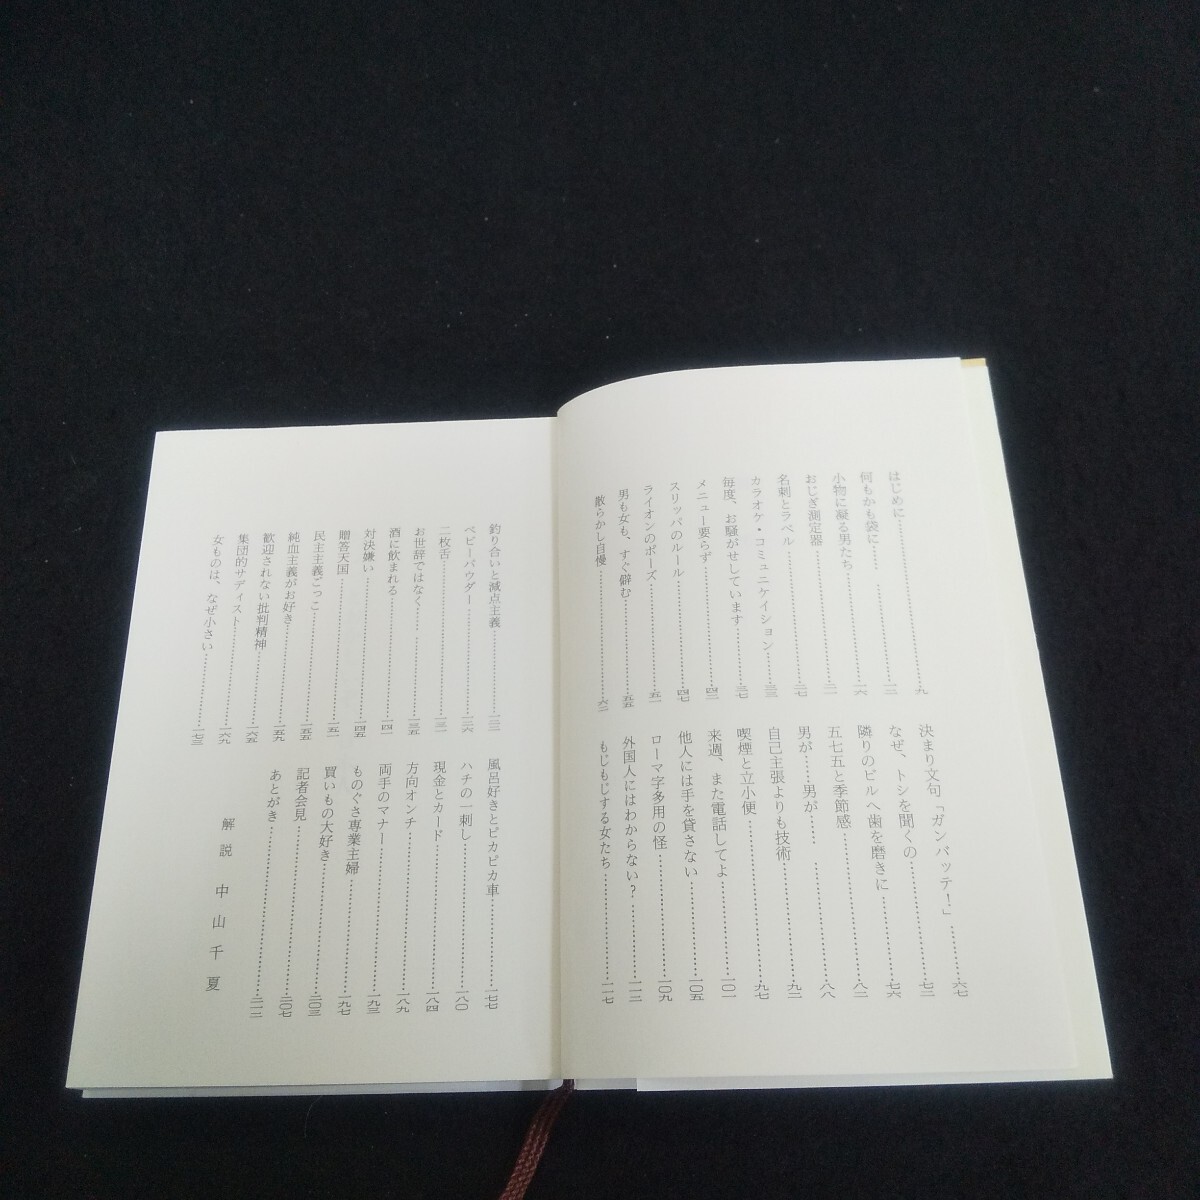 はじめに……九
何もかも袋に……一二
小物に凝る男たち……一六
おじぎ測定器……二一
名刺とラベル……二七
カラオケ・コミュニケイション……三三
毎度、お騒がせしています……三七
メニュー要らず……四二
スリッパのルール……四七
ライオンのポーズ……五一
男も女も、すぐ僻む……五五
散らかし自慢……六二
決まり文句「ガンバッテ！」……六七
なぜ、トシを聞くの……七二
隣りのビルへ歯を磨きに……七六
五七五と季節感……八二
男が……男が……八八
自己主張よりも技術……九二
喫煙と立小便……九七
来週、また電話してよ……一〇一
他人には手を貸さない……一〇五
ローマ字多用の怪……一〇九
外国人にはわからない？……一一二
もじもじする女たち……一一七
釣り合いと減点主義……一二二
ベビーパウダー……一二六
二枚舌……一三一
お世辞ではなく……一三五
酒に飲まれる……一四一
対決嫌い……一四五
贈答天国……一五一
民主主義ごっこ……一五五
純血主義がお好き……一五九
歓迎されない批判精神……一六五
集団的サディスト……一六九
女ものは、なぜ小さい……一七三
風呂好きとピカピカ車……一七七
ハチの一刺し……一八〇
現金とカード……一八四
方向オンチ……一八九
両手のマナー……一九三
ものぐさ専業主婦……一九七
買いもの大好き……二〇三
記者会見……二〇七
あとがき……二一二
解説 中山千夏